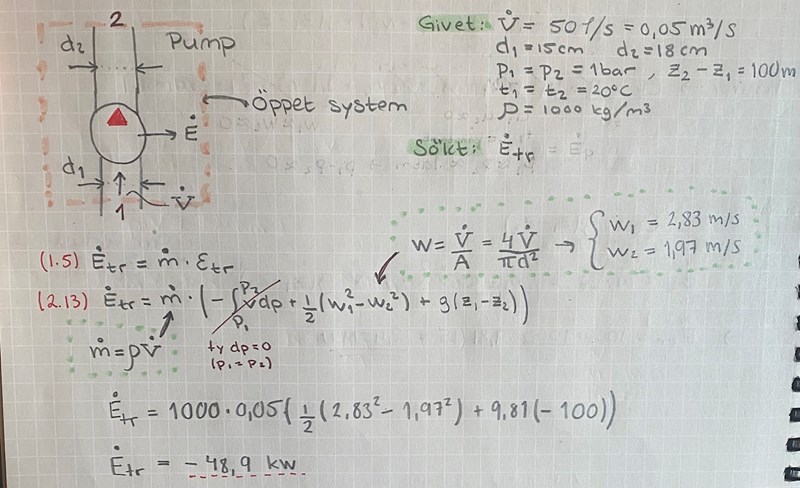 2
d₂
Pump
Öppet system
Ė
d₁
V̇
1
Givet: V̇ = 50 l/s = 0,05 m³/s
d₁ = 15 cm d₂ = 18 cm
P₁ = P₂ = 1 bar , z₂ - z₁ = 100 m
t₁ = t₂ = 20°C
ρ = 1000 kg/m³
Sökt: Ėtr
w = V̇/A = 4V̇/πd² → { w₁ = 2,83 m/s
w₂ = 1,97 m/s
(1.5) Ėtr = ṁ · εtr
(2.13) Ėtr = ṁ · (-∫P₁^P₂ vdp + 1/2 (w₁² - w₂²) + g(z₁-z₂))
ṁ = ρV̇
ty dp=0
(P₁ = P₂)
Ėtr = 1000 · 0,05 (1/2 (2,83² - 1,97²) + 9,81 (-100))
Ėtr = - 48,9 kw